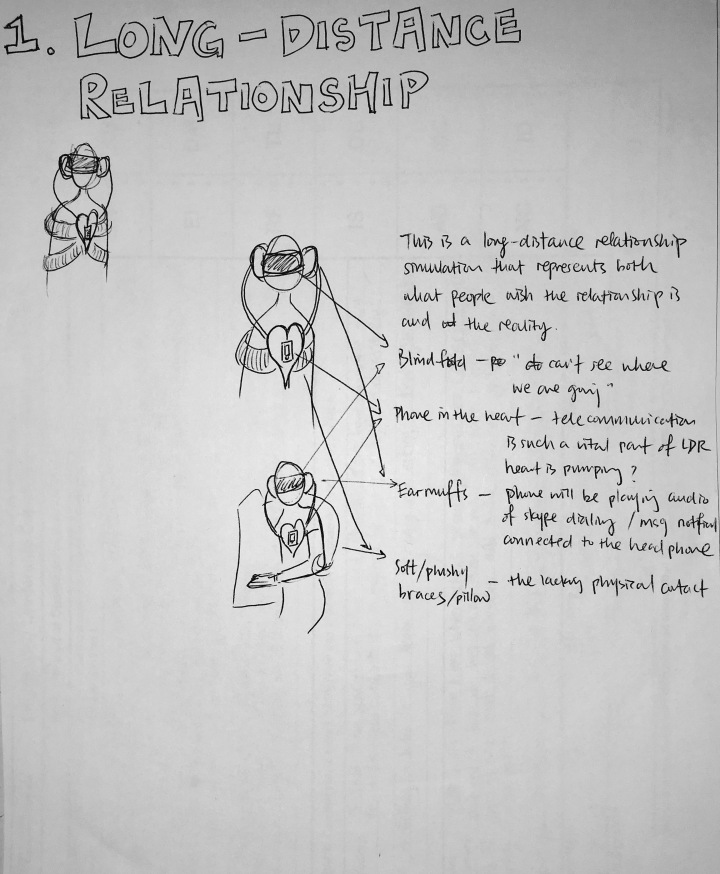 1. LONG-DISTANCE
RELATIONSHIP
This is a long-distance relationship
simulation that represents both
what people wish the relationship is
and the reality.
Blindfold - " can't see where
we are going"
Phone in the heart - telecommunication
is such a vital part of LDR
heart is pumping?
Earmuffs - phone will be playing audio
of skype dialing / msg
connected to the headphone
Soft/plushy
braces/pillow - the lacking physical contact